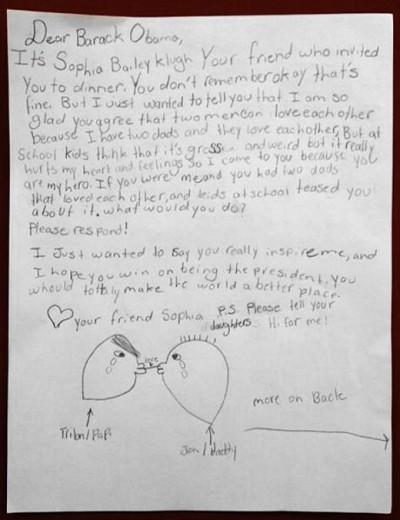 Dear Barack Obama,
It's Sophia Bailey klugh Your friend who invited
You to dinner. You don't remember okay that's
fine. But I Just wanted to tell you that I am so
glad you agree that two men can love each other
because I have two dads and they love each other, But at
School kids think that it's gross and weird but it really
hurts my heart and feelings. So I come to you because you
are my hero. If you were me and you had two dads
that loved each other, and kids at school teased you
about it. what would you do?
Please respond!
I Just wanted to say you really inspire me, and
I hope you win on being the president. you
whould totally make the world a better place.
your friend Sophia P.S. Please tell your
daughters Hi for me!
love
more on Back
Papi
Jon / daddy